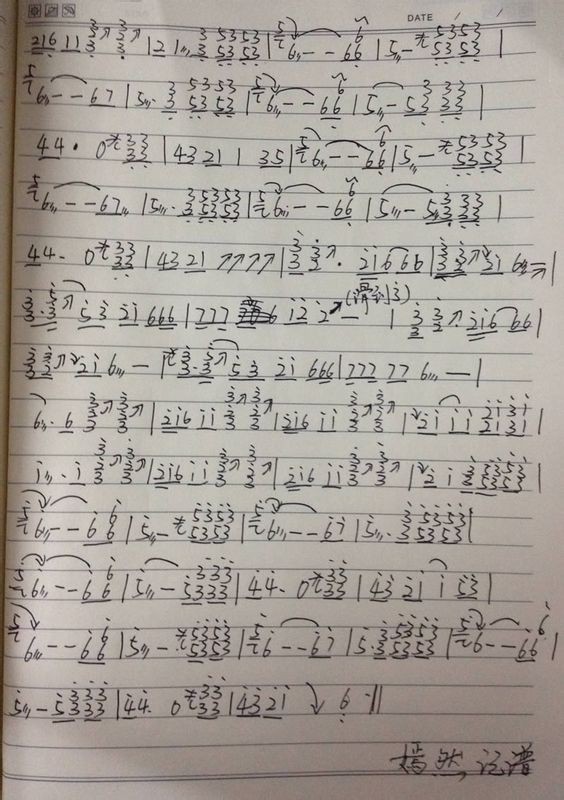 DATE
216 11 3↗ 3↗ | 121 3 5353 | 6 -- 66 | 5 - 5353
6 -- 67 | 5 3 5353 | 6 -- 66 | 5 - 53 33 |
44 · 0 33 | 43 21 1 35 | 6 -- 66 | 5 - 5353 |
6 -- 67 | 5 · 35353 | 6 -- 66 | 5 - 5333 |
44 - 0 33 | 43 21 ↗↗↗↗ | 3 3↗ · 216 66 | 33↗ 21 6 = |
3·3↗ 53 21 666 | 777 6 12 2 — (滑到3) | 3 3↗ · 216 66 |
33↗ 21 6 — | 3·3 53 21 666 | 777 77 6 — |
6 · 6 3↗3↗ | 216 11 3↗3↗ | 216 11 3↗3↗ | 21 11 2131 |
1 · 1 3↗3↗ | 216 11 3↗3↗ | 216 11 3↗3↗ | 2 1 3 5353 |
6 -- 66 | 5 - 5353 | 6 -- 67 | 5 · 3 5353 |
6 -- 66 | 5 - 5333 | 44 · 0 33 | 43 21 1 53 |
6 -- 66 | 5 - 5353 | 6 -- 67 | 5·35353 | 6 -- 66 |
5 - 5333 | 44 · 0 33 | 4321 ↘ 6 ‖
嫣然记谱